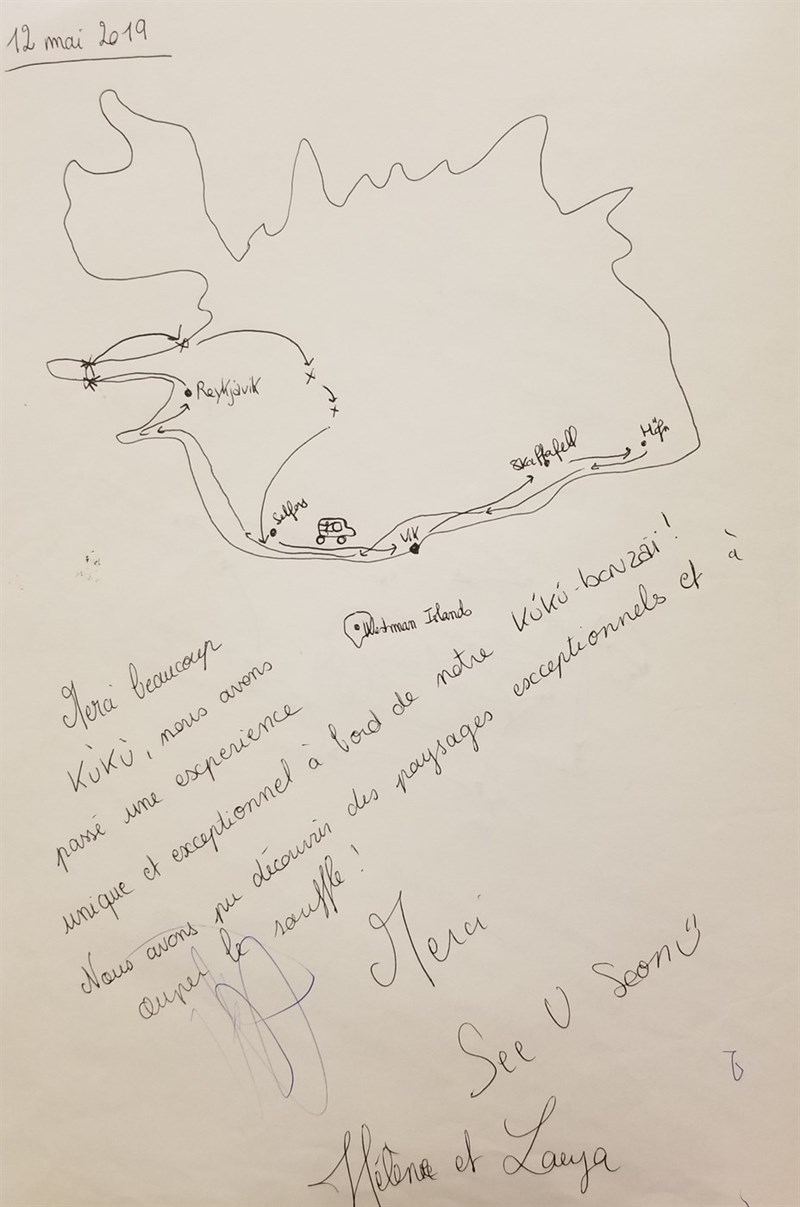 12 mai 2019
Reykjavik
Höfn
Skaffafell
Selfoss
Vik
Westman Islands
Merci beaucoup
KùKù, nous avons
passé une experience
unique et exceptionnel à bord de notre KúKú-banzaï!
Nous avons pu découvrir des paysages exceptionnels et à
couper le souffle!
Merci
See U Soon
Hélène et